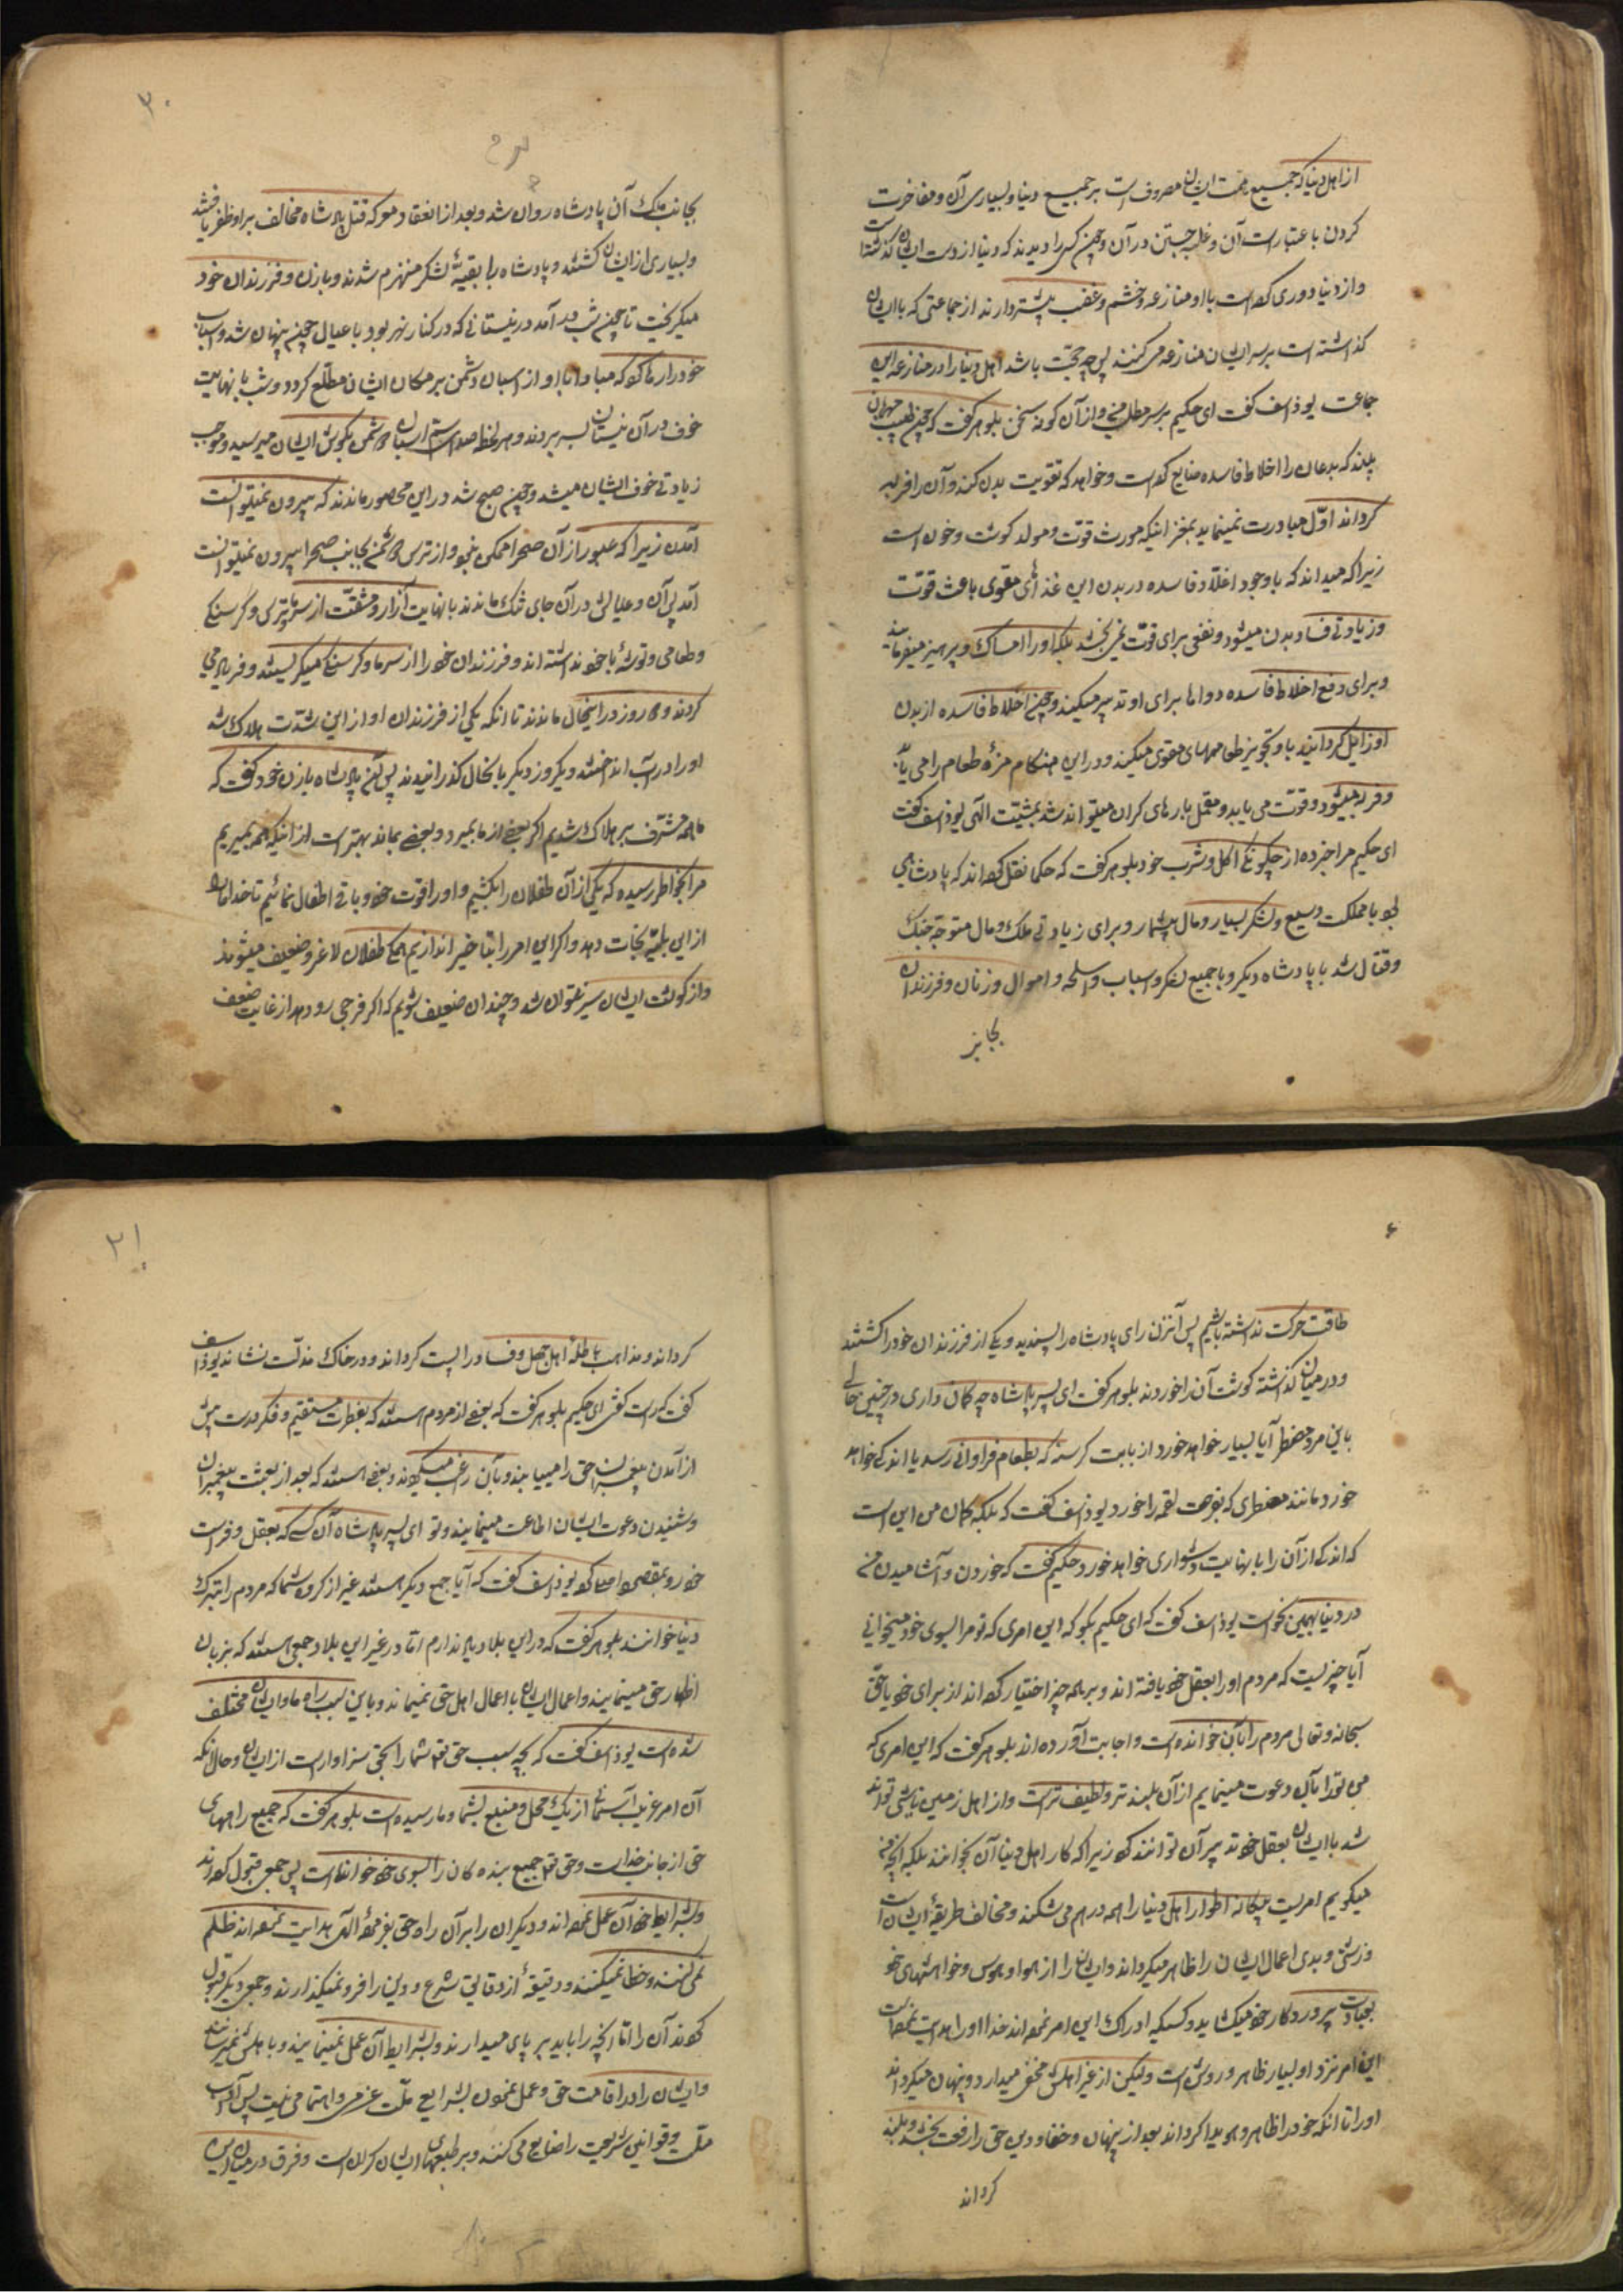 از اهل دنیا که جمیع همت ایشان مصروفست بر جمیع دنیا و بسیاری آن و مفاخرت
کردن باعتبارات آن و غلبه جستن در آن و چون کسی را دیدند که دنیا از دست ایشان گذاشته است
و از دنیا دوری کرده است با او منازعه و خشم و غضب بیشتر دارند از جماعتی که با ایشان
گذاشته است بر سر ایشان منازعه می کنند پس چه حجت باشد اهل دنیا را در منازعه این
جماعت یوذاسف گفت ای حکیم بر سر مطلب من و از آن گونه سخن بلوهر گفت که چون طبیب مهربان
بیند که بدعان را اخلاط فاسده ضایع کرده است و خواهد که تقویت بدن کند و آن را فربه
گرداند اوّل مبادرت نمینماید بغذائیکه مورث قوّت و مولد گوشت و خونست
زیرا که میداند که با وجود اخلاط فاسده در بدن این غذاهای مقوی باعث قوّت
و زیادتی فساد بدن میشود و نفعی برای قوّت نمی بخشد بلکه او را امساک و پرهیز میفرماید
و برای دفع اخلاط فاسده دواها برای او تدبیر میکند و چون اخلاط فاسده از بدن
او زایل گردانید باو تجویز طعامهای مقوی میکند و در این هنگام مزهٔ طعام را می یابد
و فربه میشود و قوّت می یابد و متحمل بارهای گران میتواند شد بمشیّت الهی یوذاسف گفت
ای حکیم مرا خبر ده از چگونگی اکل و شرب خود بلوهر گفت که حکما نقل کرده اند که پادشاهی
بود با مملکت وسیع و لشکر بسیار و مال بیشمار و برای زیادتی ملک و مال متوجه جنگ
و قتال شد با پادشاه دیگر و با جمیع لشکر و اسباب و اسلحه و اموال و زنان و فرزندان
بجانب
۲۰
بجانب ملک آن پادشاه روان شد و بعد از انعقاد معرکه قتل پادشاه مخالف بر او ظفر یافتند
و بسیاری از ایشان کشتند و پادشاه با بقیهٔ لشکر منهزم شدند و با زن و فرزندان خود
میگریخت تا چون شب درآمد در نیستانی که در کنار نهر بود با عیال چون پنهان شد و اسبان
خود را رها کرد که مبادا با آواز اسبان دشمن بر مکان ایشان مطلّع گردد و شب با نهایت
خوف در آن نیستان بسر بردند و هر لحظه صدای سم اسبان دشمن بگوش ایشان میرسید و موجب
زیادتی خوف ایشان میشد و چون صبح شد در این محصور ماندند که بیرون نمیتوانست
آمدن زیرا که عبور از آن صحرا ممکن نبود و از ترس دشمن بجانب صحرا بیرون نمیتوانست
آمد پس آن و عیالش در آن جای تنگ ماندند با نهایت آزار و مشقّت از سرما و ترس و گرسنگی
و طعامی و توشهٔ با خود نداشته اند و فرزندان خورد از سرما و گرسنگی میگریستند و فریاد می
کردند و دو روز در اینحال ماندند تا انکه یکی از فرزندان او از این شدّت هلاک شد
او را در آب انداختند و یکروز دیگر باینحال گذرانیدند پس آن پادشاه با زن خود گفت که
ما همه مشرف بر هلاک شدیم اگر بعضی از ما بمیرد و بعضی بماند بهتر است از اینکه همه بمیریم
مرا بخاطر رسیده که یکی از آن طفلان را بکشیم و او را قوت خود و باقی اطفال نمائیم تا خدا ما را
از این بلیّه نجات دهد و اگر این امر را بتاخیر اندازیم همگی طفلان لاغر و ضعیف میشوند
و از گوشت ایشان سیر نتوان شد و چندان ضعیف شویم که اگر فرجی رو دهد از غایت ضعف
طاقت حرکت نداشته باشیم پس آنزن رای پادشاه را پسندید و یکی از فرزندان خود را کشتند
و در میان گذاشته گوشت آن را خوردند بلوهر گفت ای پسر پادشاه چه گمان داری در چنین حالی
باین مرد مضطر آیا بسیار خواهد خورد از بابت گرسنهٔ که بطعام فراوانی رسد یا اندکی خواهد
خورد مانند مضطری که بضرورت لقمه را خورد یوذاسف گفت که بلکه گمان من این است
که اندکی از آن را با نهایت دشواری خواهد خورد حکیم گفت که خوردن و آشامیدن من
در دنیا بهمین نحو است یوذاسف گفت که ای حکیم بگو که این امری که تو مرا بسوی خود میخوانی
آیا چیزیست که مردم او را بعقل خود یافته اند و بر همه چیز اختیار کرده اند از برای خود یا حقّ
سبحانه و تعالی مردم را بآن خوانده است و اجابت آورده اند بلوهر گفت که این امری که
من تو را بآن دعوت مینمایم از آن بلندتر و لطیف تر است و از اهل زمین ناشی تواند
شد یا ایشان بعقل خود تدبیر آن توانند کرد زیرا که کار اهل دنیا آن بخوانند بلکه انچه من
میگویم امریست بیگانه اطوار اهل دنیا را همه در هم می شکند و مخالف طریقهٔ ایشان است
و زشتی و بدی اعمال ایشان را ظاهر میگرداند و ایشان را از هوا و هوس و خواهشهای خود
بعبادت پروردگار خود میکشاید و کسیکه ادراک این امر نموده اند خدا او را هدایت نموده است
این امر نزد او بسیار ظاهر و روشن است ولیکن از غیر اهلش مخفی میدارد و پنهان میگرداند
او را تا انکه خود را ظاهر و هویدا گرداند بعد از پنهان و خفا و دین حق را رفعت بخشد و بلند
گرداند
۲۱
گرداند و مذاهب باطله اهل جهل و فساد را پست گرداند و در خاک مذلت نشاند یوذاسف
گفت که راست گفتی ای حکیم بلوهر گفت که بعضی از مردم هستند که بفطرت مستقیم و فکر درست پیش
از آمدن پیغمبران حق را مییابند و بآن راغب میگردند و بعضی هستند که بعد از بعثت پیغمبران
و شنیدن دعوت ایشان اطاعت مینمایند و تو ای پسر پادشاه آن کسی که بعقل و فراست
خود رو بمقصود اصلی کرد یوذاسف گفت که آیا جمع دیگر هستند غیر از گروه شما که مردم را بترک
دنیا خوانند بلوهر گفت که در این بلاد ندارم امّا در غیر این بلاد جمعی هستند که بزبان
اظهار حق مینمایند و اعمال ایشان با اعمال اهل حق نمیماند و باین سبب راه ما و ایشان مختلف
شده است یوذاسف گفت که بچه سبب حق تعالی شما را بحق سزاوار است از ایشان و حال انکه
آن امر غریب آسمانی از یک محل و منبع بشما و ما رسیده است بلوهر گفت که جمیع راههای
حق از جانب خداست و حق تعالی جمیع بنده گان را بسوی خود خوانده است پس جمعی قبول کرده اند
و بشرایط خود آن عمل نموده اند و دیگران را بر آن راه حق بفرمودهٔ الهی هدایت نموده اند ظلم
نمی کنند و خطا نمیکنند و دقیقهٔ از دقایق شرع و دین را فرو نمیگذارند و جمعی دیگر قبول
کردند آن را امّا انچه را باید بر پای میدارند و بشرایط آن عمل نمینمایند و باهلش نمیرسانند
و ایشان را در اقامت حق و عمل نمودن بشرایع ملّت عزمی و اهتمامی نیست پس آداب
ملّت و قوانین شریعت را ضایع می کنند و بر طبعهای ایشان گران است و فرق در میان این